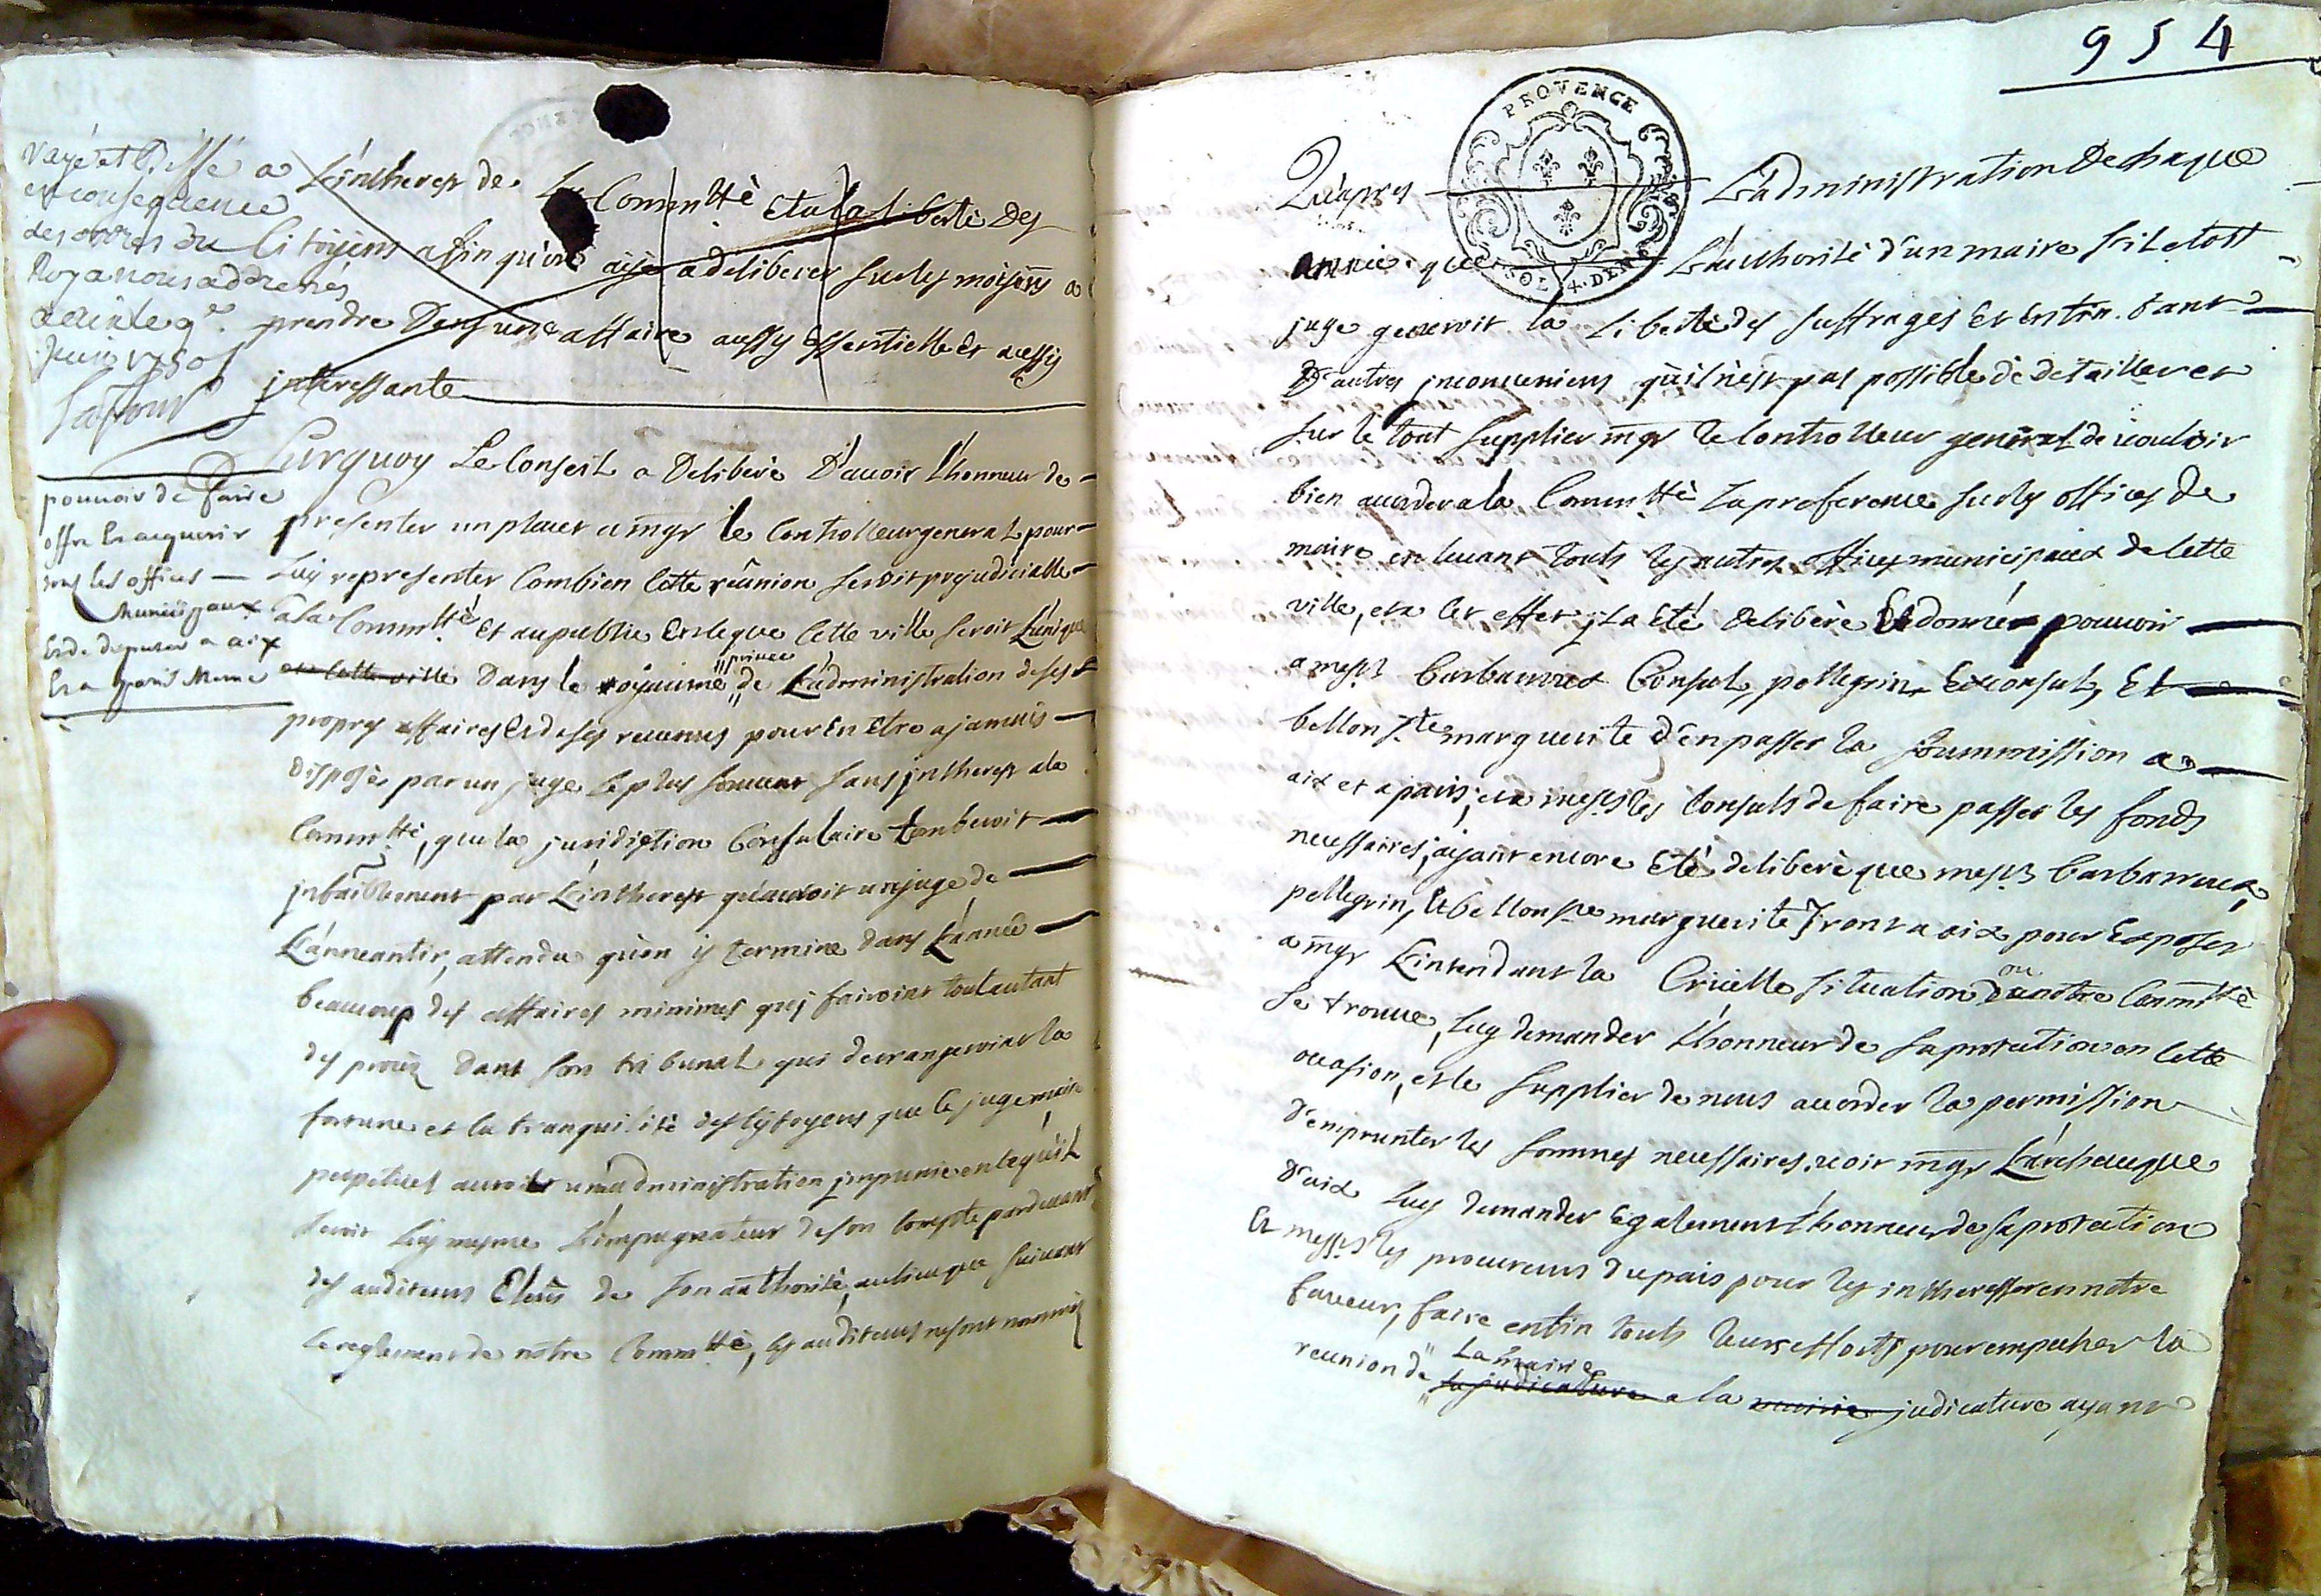 rayé et biffé
en consequence
des ordres du
Roy a nous addressés
a aix le 9e
juin 1750
a L'intherest de La Commtté et a la liberté des
Citoyens afin qu'on aije a deliberer sur les moyens a
prendre Dans une affaire aussy Essentielle et aussy
jnteressante
pouvoir de faire
offre Et acquerir
tous les offices
Municipaux
Et de deputer a aix
Et a paris Meme
Surquoy Le Conseil a Deliberé D'avoir L'honneur de
presenter un placet a mgr le Controlleur general pour
Luy representer Combien Cette reûnion seroit prejudiciable
a la Commtté et au public En ce que Cette ville seroit L'unique
cette ville Dans le royaume privée de L'administration de ses
propres affaires Et de ses revenus pour En Etre a jamais
disposés par un juge le plus souvent sans jntherest a la
Commtté, que la juridiction Consulaire tomberoit
jnfailliblement par L'intherest qu'auroit un juge de
L'anneantir, attendu qu'on y termine dans L'année
beaucoup des affaires minimes quy fairoint tout autant
des procés dans son tribunal qui derrangeroint la
fortune et la tranquilité des Cytoyens que le juge maire
perpetuel auroit une administration jmpunie en ce qu'il
seroit Luy mesme L'impugnateur de son Compte pardevant
des auditeurs Eleus de son authorité, au lieu que suivant
le reglement de notre Commtté, les auditeurs ne sont nommés
954
PROVENCE
Qu'apres L'administration De chaque
année que L'authorité d'un maire si tot ost
juge generoit la Liberté des suffrages Et Entrn. tant
D'autres jnconveniens qu'il n'est pas possible de detailler et
sur le tout supplier mgr le Controlleur general de vouloir
bien accorder a la Commtté La preference sur les offices de
maire en levant touts les autres offices municipaux de Cette
ville, et a Cet effet jl a Eté Deliberé Et donné pouvoir
a messrs Barbarroux Consul, pellegrin Exconsul, Et
bellon Ste marguerite d'en passer la soummission a
aix et a paris; et a messrs les Consuls de faire passer les fonds
necessaires; ayant encore Eté deliberé que messrs Barbarroux,
pellegrin, Et bellon Ste marguerite Jront a aix pour Exposer
a mgr L'intendant la Cruelle situation ou notre Commtté
se trouve, Luy demander L'honneur de sa protection en Cette
occasion, et le supplier de nous accorder la permission
d'emprunter les sommes necessaires, voir mgr L'archeveque
d'aix Luy demander Egalement L'honneur de sa protection
Et messrs les procureurs du pais pour les intheresser en notre
faveur, faire enfin touts leurs efforts pour empecher la
reunion de La mairie la judicature a la mairie judicature ayant